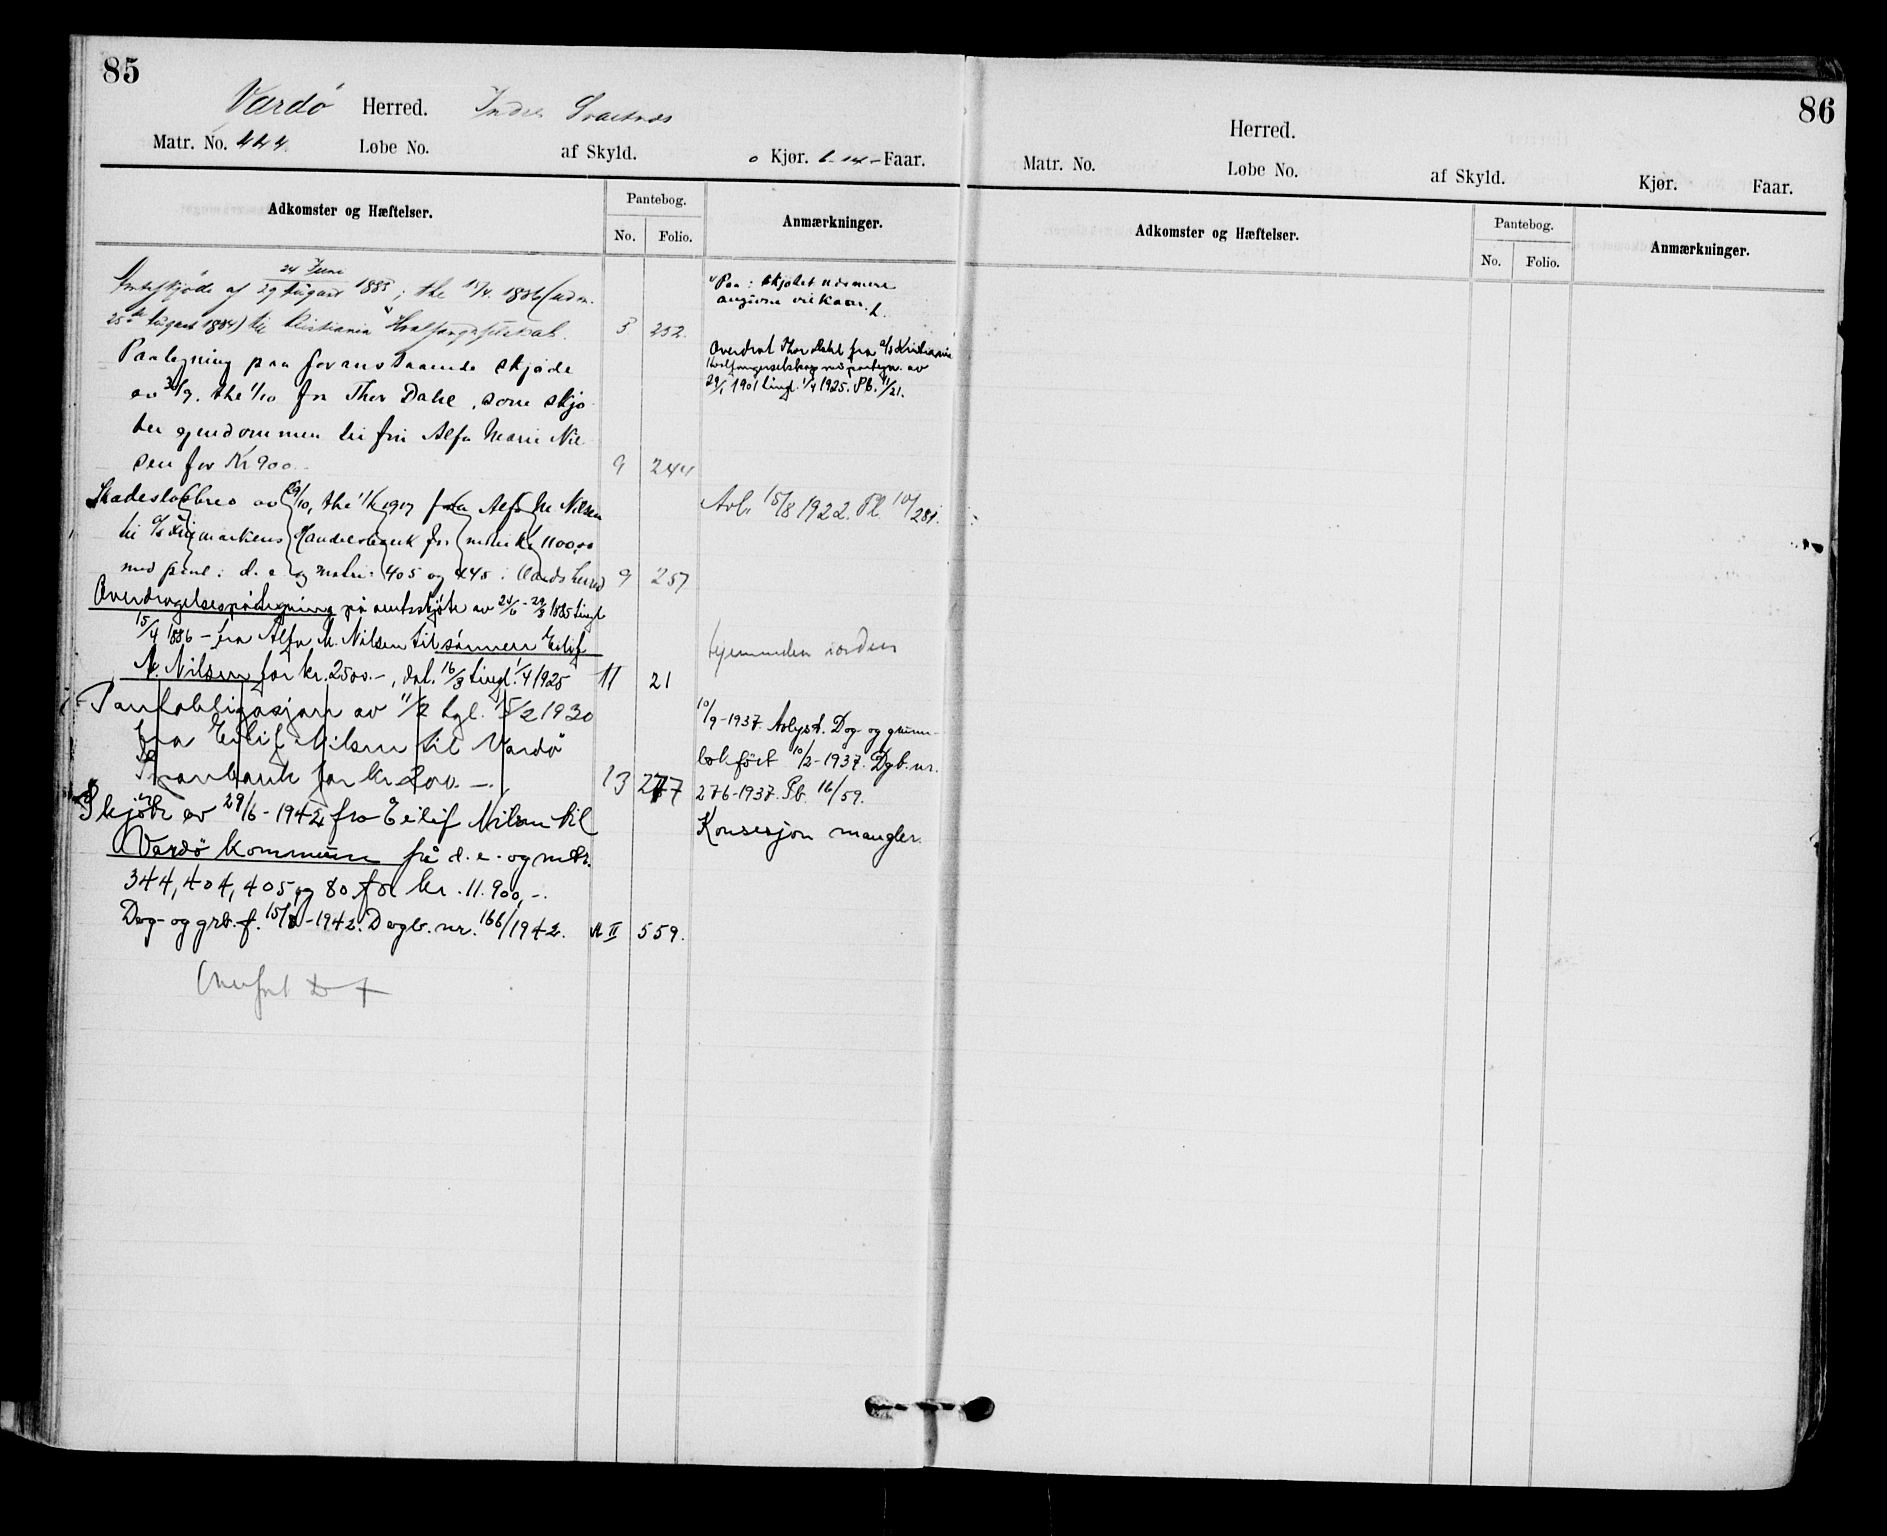 85
Vardø Herred. Indre Svartnæs
Matr. No. 444 Løbe No. af Skyld. o Kjør. Faar.
Adkomster og Hæftelser. Pantebog. No. Folio. Anmærkninger.
24 Juni
Amtsskjøde af 29 August 1885, thl 15/4 1886 (adm.
25de August 1884) til Kristiania Hvalfangstselskab. 3 252.
Paategning paa foranstaaende skjøde
av 30/9, thl 1/10 fra Thor Dahl, som skjø
ter ejendommen til fru Alfa Marie Nil
sen for Kr 900. 9 244
Skadesløsbrev av 29/10, thl 1/11 1917 fra Alfa M Nilsen
til A/S Finmarkens Handelsbank for inntil kr 11000,00
med pant i d. e. og matr. 405 og 445 i Vardø herred 9 257
Overdragelsespåtegning på amtsskjøte av 24/6 - 29/8 1885 tingl.
15/4 1886 - fra Alfa M. Nilsen til sönnen Eilif
N. Nilsen for kr. 2500.-, dat. 16/3 tingl. 1/4 1925 11 21
Pantobligasjon av 11/2 tgl. 15/2 1930
fra Eilif Nilsen til Vardö
Sparebank for kr. 200.- 13 277
Skjöte av 29/6 - 1942 fra Eilif Nilsen til
Vardø kommune på d. e. og mtr.
344, 404, 405 og 80 for kr. 11.900,-.
Dag- og grb. f. 15/8 - 1942. Dagb. nr. 166/1942. A II 559.
Overført
Paa i skjødet nærmere
angivne vilkaar.
Overdrat Thor Dahl fra A/S Kristiania
Hvalfangerselskap ved påtegn. av
29/1 1901 tingl. 1/4 1925. Pb. 11/21.
Avl. 15/8 1922. Pb 10/281.
hjemmelen iorden
10/9-1937. Avlyst. Dag- og grunn-
bokfört 10/2-1937. Dgb. nr.
276-1937. Pb. 16/59.
Konsesjon mangler.
86
Herred.
Matr. No. Løbe No. af Skyld. Kjør. Faar.
Adkomster og Hæftelser. Pantebog. No. Folio. Anmærkninger.